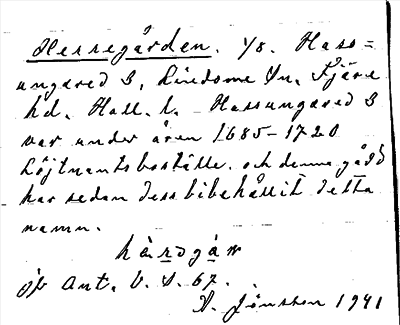 Herregården. 1/8. Hass=
ungared 3, Lindome sn, Fjäre
hd. Hall. l. Hassungared 3
var under åren 1685-1720
Löjtnantsboställe, och denna gård
har sedan dess bibehållit detta
namn.
hä̀rs̱gà̱ṉ
jfr Ant. V. S. 67.
A. Jönsson 1941